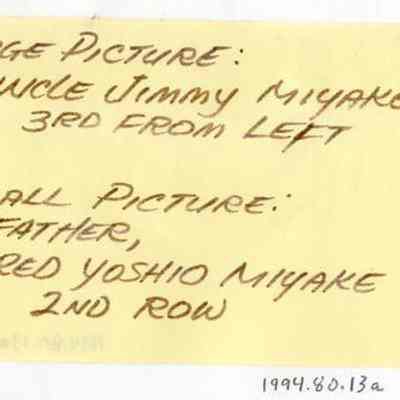 GE PICTURE:
NCLE JIMMY MIYAKE
3RD FROM LEFT
ALL PICTURE:
FATHER,
RED YOSHIO MIYAKE
2ND ROW
1994.80.13a